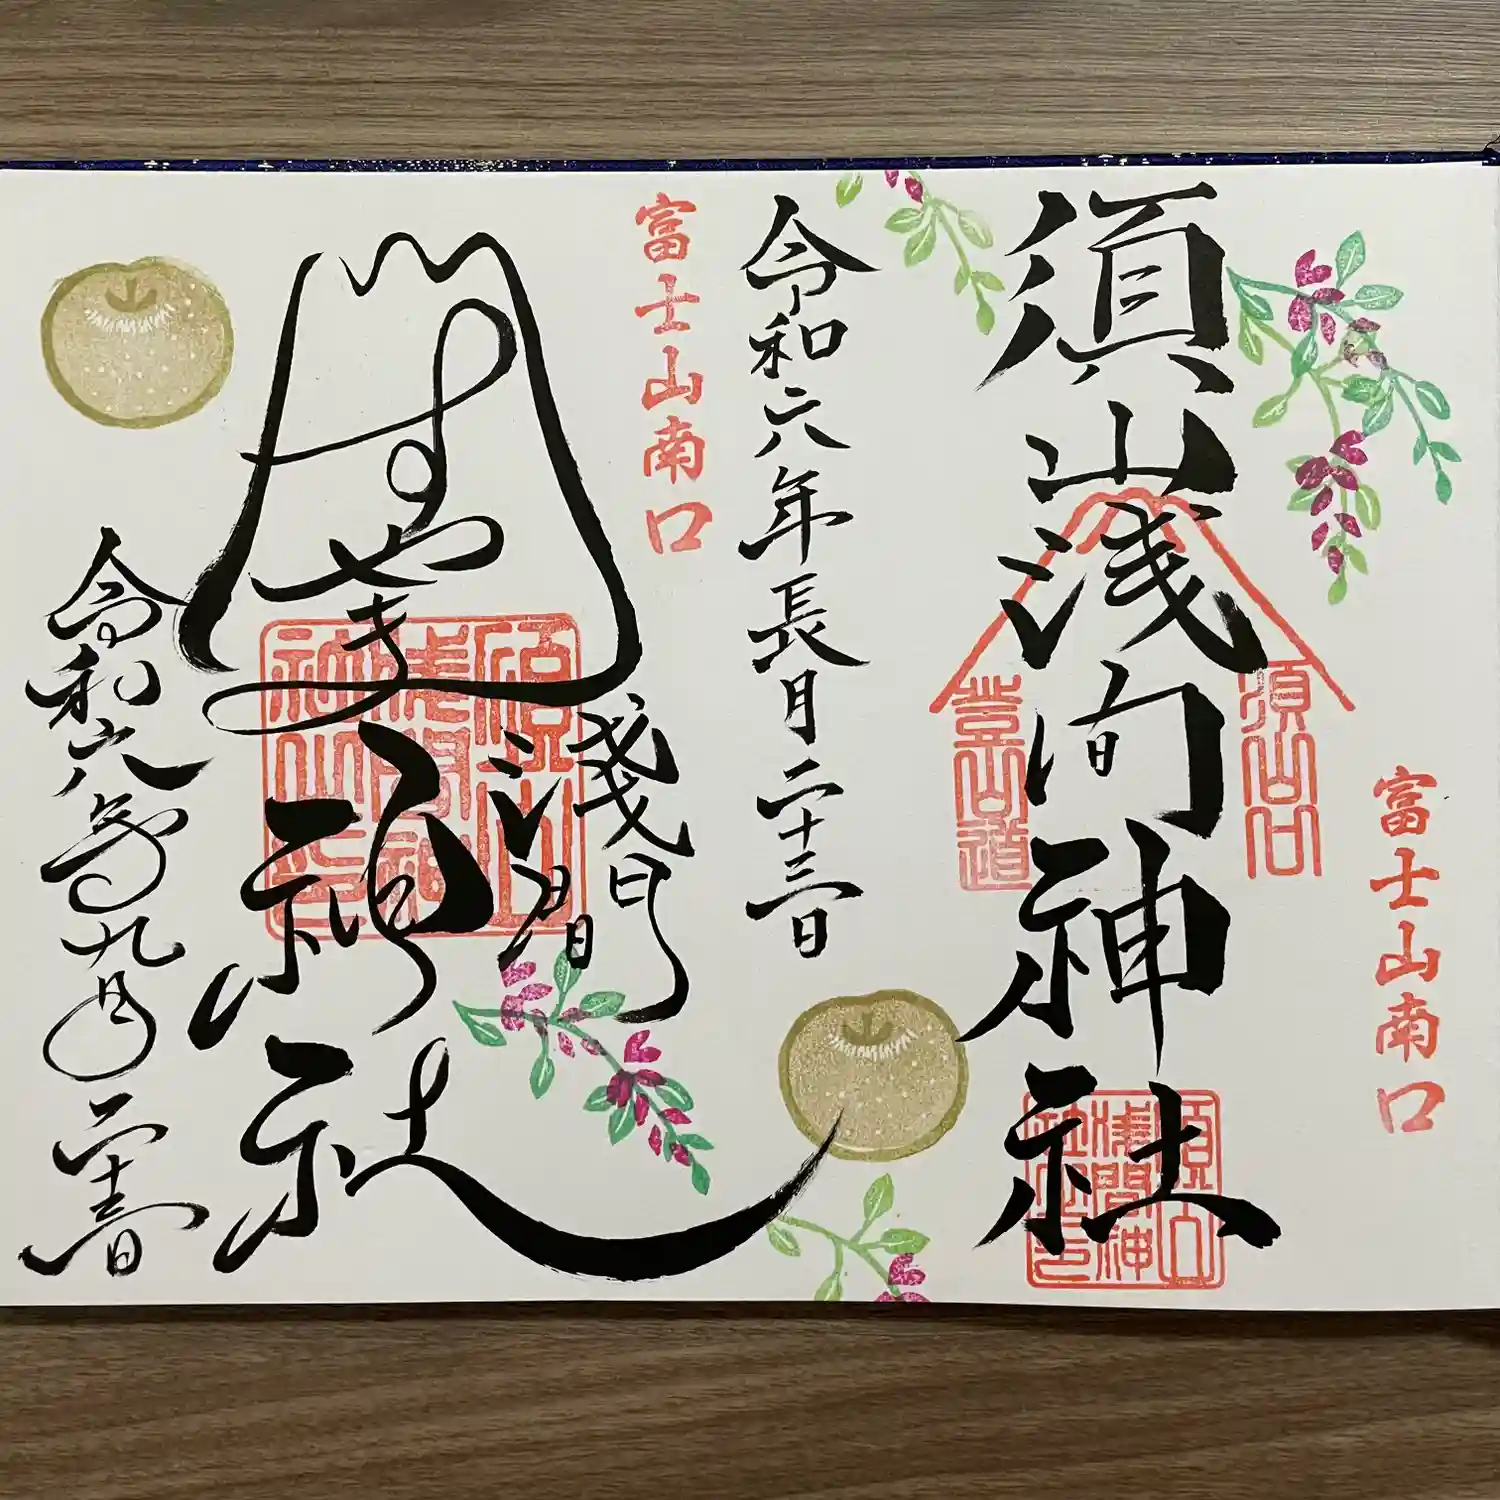 富士山南口
須山浅間神社
須山口
登山道
須山
浅間神
社之印
令和六年長月二十三日
富士山南口
すやま
浅間
神社
須山
浅間神
社之印
令和六年九月二十三日